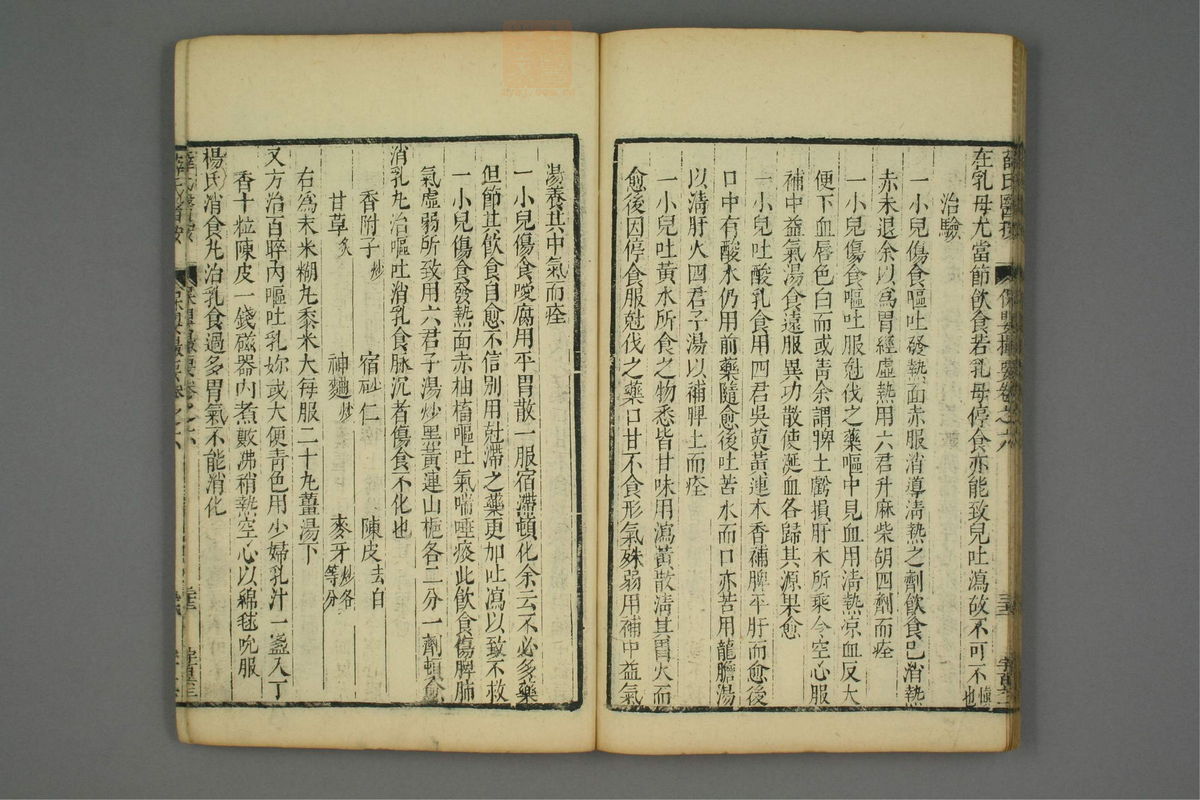 薛氏醫按 保嬰撮要卷之六
在乳母尤當節飲食若乳母停食亦能致兒吐瀉故不可不慎也
治驗
一小兒傷食嘔吐發熱面赤服消導清熱之劑飲食已消熱
赤未退余以爲胃經虛熱用六君升麻柴胡四劑而痊
一小兒傷食嘔吐服尅伐之藥嘔中見血用清熱凉血反大
便下血唇色白而或青余謂脾土虧損肝木所乘令空心服
補中益氣湯食遠服異功散使涎血各歸其源果愈
一小兒吐酸乳食用四君吳萸黃連木香補脾平肝而愈後
口中有酸水仍用前藥隨愈後吐苦水而口亦苦用龍膽湯
以清肝火四君子湯以補脾土而痊
一小兒吐黃水所食之物悉皆甘味用瀉黃散清其胃火而
愈後因停食服尅伐之藥口甘不食形氣殊弱用補中益氣
湯養其中氣而痊
一小兒傷食噯腐用平胃散一服宿滯頓化余云不必多藥
但節其飲食自愈不信別用尅滯之藥更加吐瀉以致不救
一小兒傷食發熱面赤抽搐嘔吐氣喘唾痰此飲食傷脾肺
氣虛弱所致用六君子湯炒黑黃連山梔各二分一劑頓愈
消乳丸治嘔吐消乳食脉沉者傷食不化也
香附子炒 宿砂仁 陳皮去白
甘草炙 神麯炒 麥牙炒各等分
右爲末米糊丸黍米大每服二十丸薑湯下
又方治百晬內嘔吐乳妳或大便青色用少婦乳汁一盞入丁
香十粒陳皮一錢磁器內煮數沸稍熱空心以綿毬吮服
楊氏消食丸治乳食過多胃氣不能消化
薛氏醫按 保嬰撮要卷之六